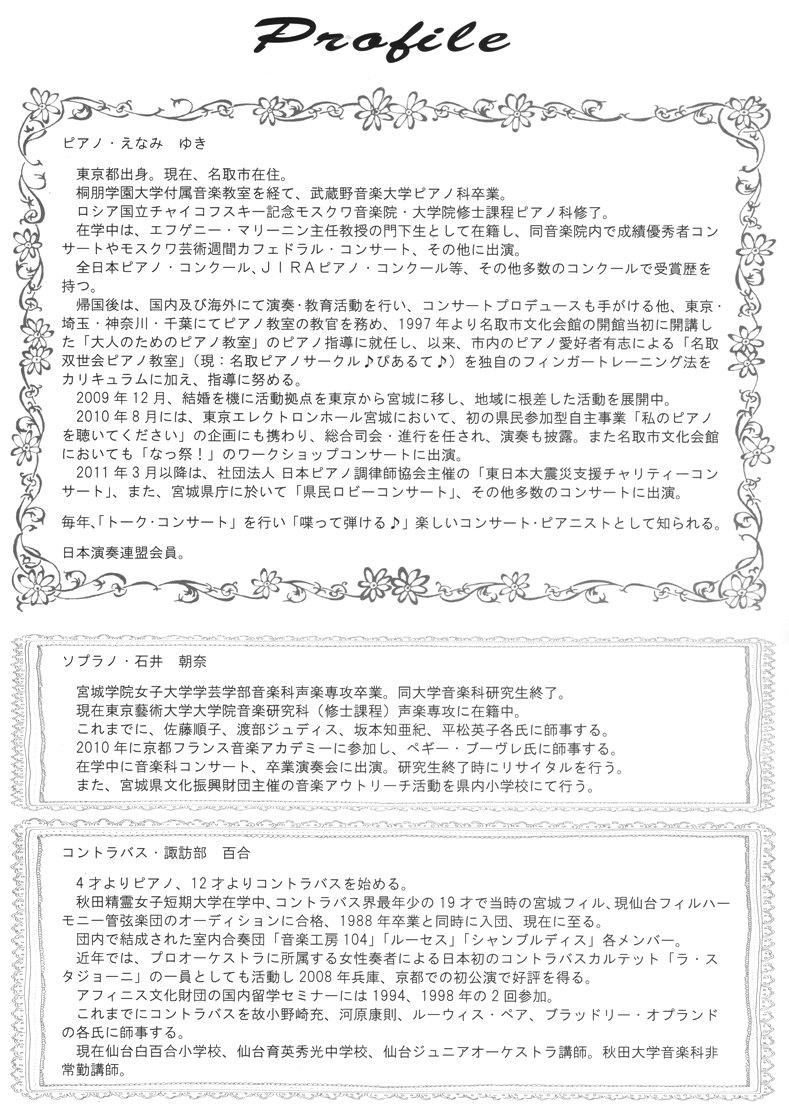 Profile
ピアノ・えなみ　ゆき
東京都出身。現在、名取市在住。
桐朋学園大学付属音楽教室を経て、武蔵野音楽大学ピアノ科卒業。
ロシア国立チャイコフスキー記念モスクワ音楽院・大学院修士課程ピアノ科修了。
在学中は、エフゲニー・マリーニン主任教授の門下生として在籍し、同音楽院内で成績優秀者コン
サートやモスクワ芸術週間カフェドラル・コンサート、その他に出演。
全日本ピアノ・コンクール、ＪＩＲＡピアノ・コンクール等、その他多数のコンクールで受賞歴を
持つ。
帰国後は、国内及び海外にて演奏・教育活動を行い、コンサートプロデュースも手がける他、東京・
埼玉・神奈川・千葉にてピアノ教室の教官を務め、1997年より名取市文化会館の開館当初に開講し
た「大人のためのピアノ教室」のピアノ指導に就任し、以来、市内のピアノ愛好者有志による「名取
双世会ピアノ教室」（現：名取ピアノサークル♪ぴあるて♪）を独自のフィンガートレーニング法を
カリキュラムに加え、指導に努める。
2009年12月、結婚を機に活動拠点を東京から宮城に移し、地域に根差した活動を展開中。
2010年8月には、東京エレクトロンホール宮城において、初の県民参加型自主事業「私のピアノ
を聴いてください」の企画にも携わり、総合司会・進行を任され、演奏も披露。また名取市文化会館
においても「なっ祭！」のワークショップコンサートに出演。
2011年3月以降は、社団法人 日本ピアノ調律師協会主催の「東日本大震災支援チャリティーコン
サート」、また、宮城県庁に於いて「県民ロビーコンサート」、その他多数のコンサートに出演。
毎年、「トーク・コンサート」を行い「喋って弾ける♪」楽しいコンサート・ピアニストとして知られる。
日本演奏連盟会員。
ソプラノ・石井　朝奈
宮城学院女子大学学芸学部音楽科声楽専攻卒業。同大学音楽科研究生終了。
現在東京藝術大学大学院音楽研究科（修士課程）声楽専攻に在籍中。
これまでに、佐藤順子、渡部ジュディス、坂本知亜紀、平松英子各氏に師事する。
2010年に京都フランス音楽アカデミーに参加し、ペギー・ブーヴレ氏に師事する。
在学中に音楽科コンサート、卒業演奏会に出演。研究生終了時にリサイタルを行う。
また、宮城県文化振興財団主催の音楽アウトリーチ活動を県内小学校にて行う。
コントラバス・諏訪部　百合
4才よりピアノ、12才よりコントラバスを始める。
秋田精霊女子短期大学在学中、コントラバス界最年少の19才で当時の宮城フィル、現仙台フィルハー
モニー管弦楽団のオーディションに合格、1988年卒業と同時に入団、現在に至る。
団内で結成された室内合奏団「音楽工房104」「ルーセス」「シャンブルディス」各メンバー。
近年では、プロオーケストラに所属する女性奏者による日本初のコントラバスカルテット「ラ・ス
タジョーニ」の一員としても活動し2008年兵庫、京都での初公演で好評を得る。
アフィニス文化財団の国内留学セミナーには1994、1998年の2回参加。
これまでにコントラバスを故小野崎充、河原康則、ルーウィス・ペア、ブラッドリー・オプランド
の各氏に師事する。
現在仙台白百合小学校、仙台育英秀光中学校、仙台ジュニアオーケストラ講師。秋田大学音楽科非
常勤講師。